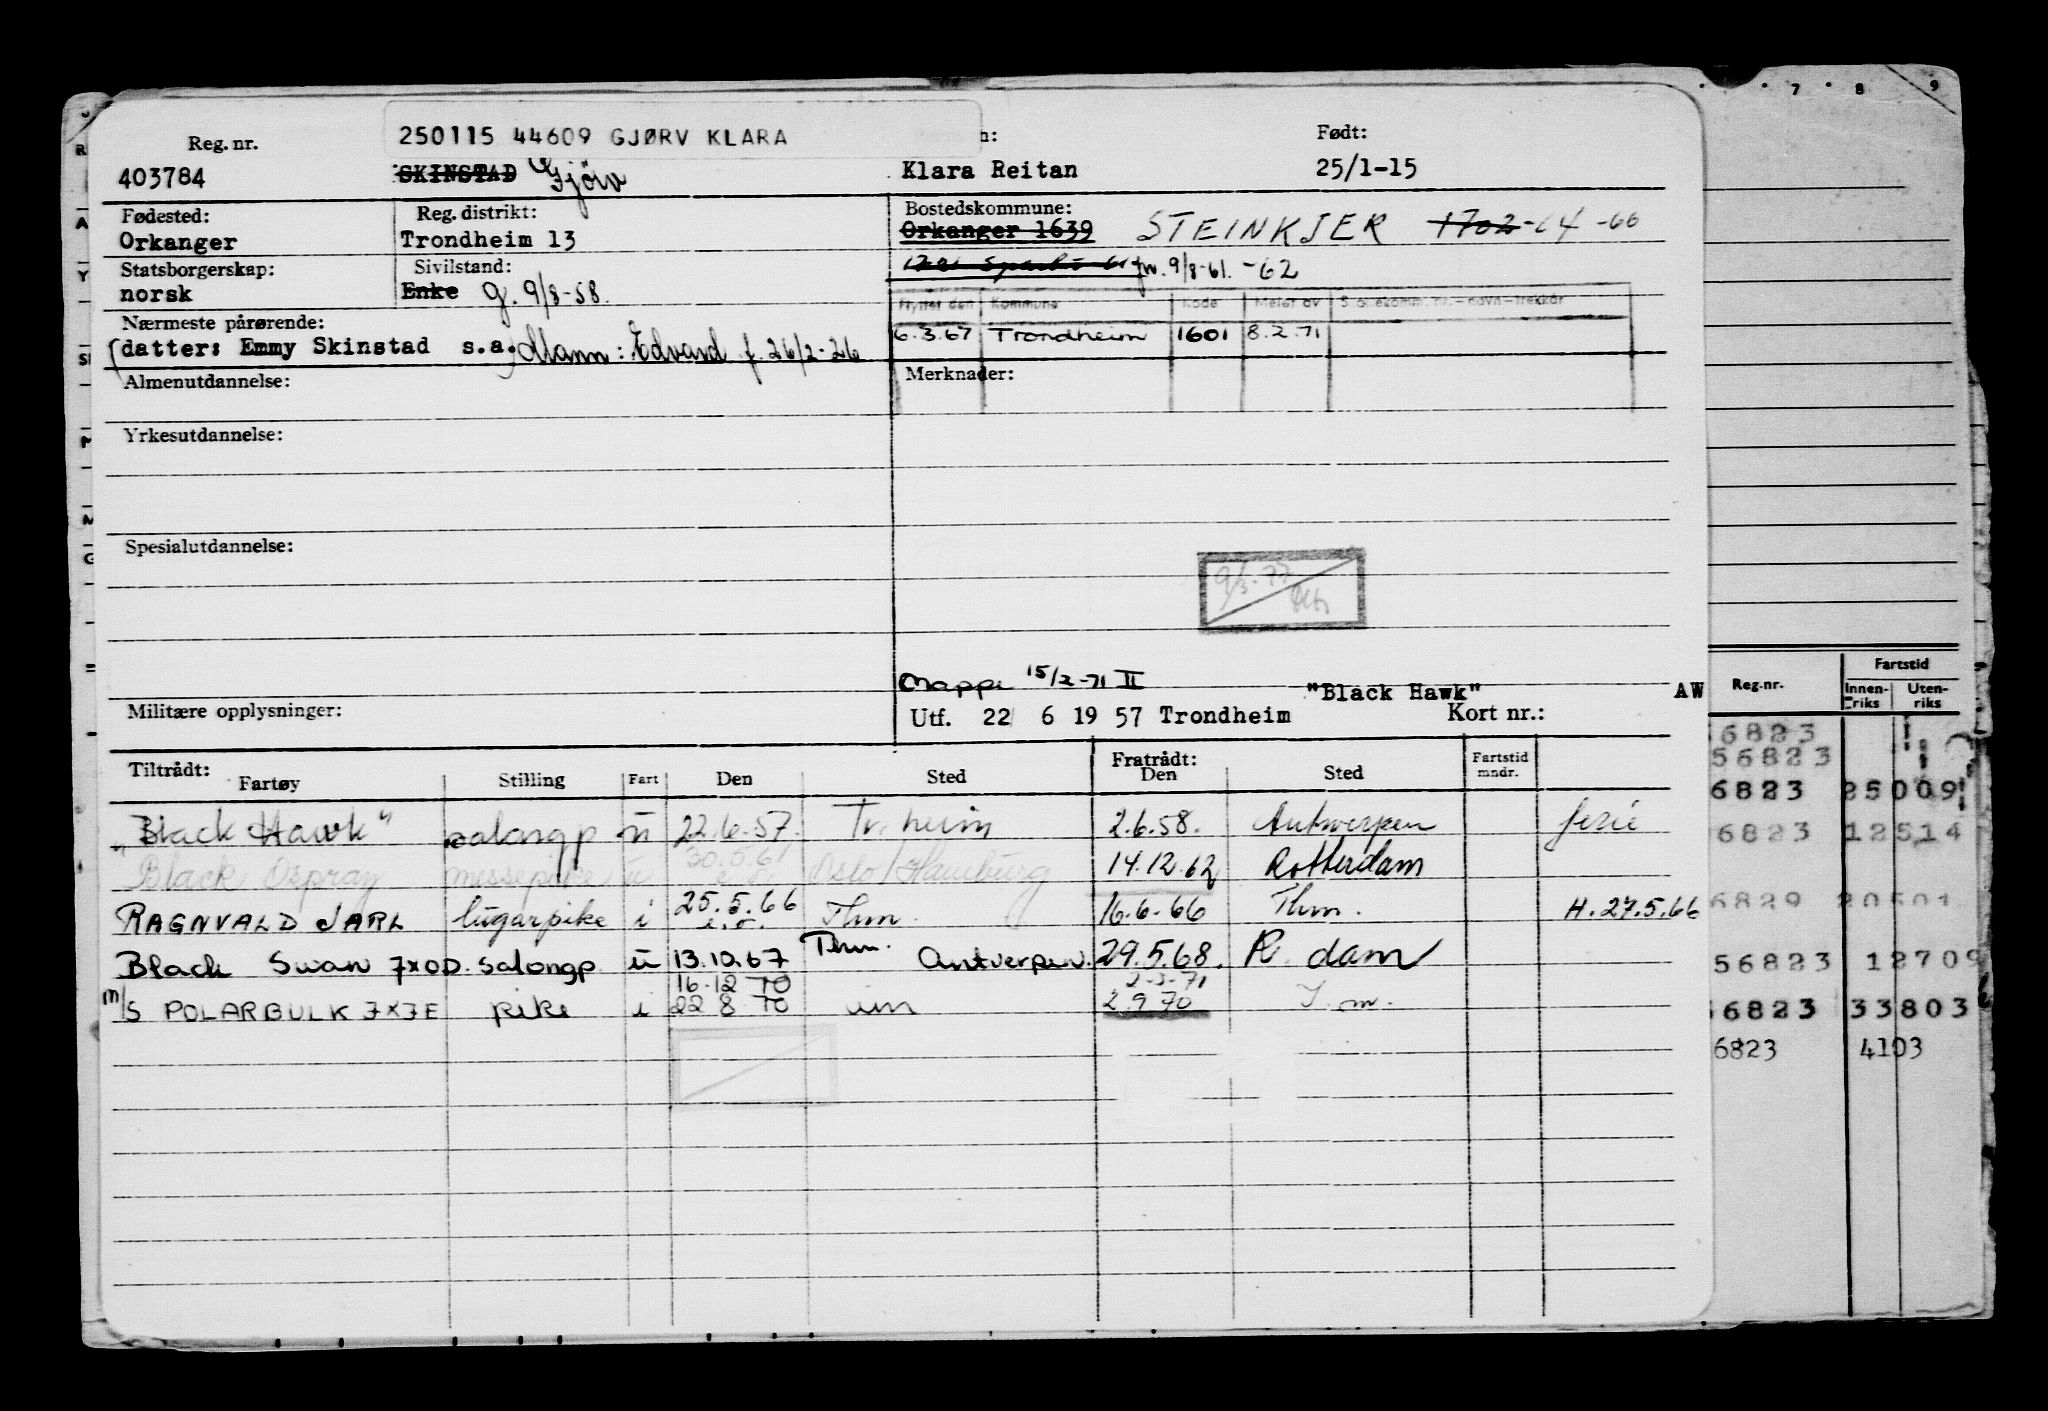 Reg. nr.
250115 44609 GJØRV KLARA
Født:
403784 SKINSTAD Gjörv
Klara Reitan
25/1-15
Fødested:
Orkanger
Reg. distrikt:
Trondheim 13
Bostedskommune:
Orkanger 1639 STEINKJER 1702-64 -66
Statsborgerskap:
norsk
Sivilstand:
Enke g. 9/8-58.
9/8-61. -62
Flyttet den Kommune Kode Meldt av
6.3.67 Trondheim 1601 8.2.71
Nærmeste pårørende:
(datter: Emmy Skinstad s.a.) Mann: Edvard f. 26/2-26
Almenutdannelse:
Merknader:
Yrkesutdannelse:
Spesialutdannelse:
9/3-77
Mappe 15/2-71 II
"Black Hawk" AW
Militære opplysninger:
Utf. 22 6 19 57 Trondheim Kort nr.:
Tiltrådt:
Fartøy Stilling Fart Den Sted
Fratrådt:
Den Sted
Fartstid
mndr.
"Black Hawk" salongp ü 22.6.57. Tr.heim 2.6.58. Antwerpen ferie
Black Ospray messepike ü 30.5.61 Oslo/Hamburg 14.12.62 Rotterdam
RAGNVALD JARL lugarpike i 25.5.66 Thm. 16.6.66 Thm. H.27.5.66
Black Swan 7x0D. salongp ü 13.10.67 Thm. Antverpen. 29.5.68. R.dam
16.12 70 2-3-71
M/S POLARBULK 7x7E pike i 22 8 70 2 9 70
7 8 9
Reg.nr.
Fartstid
Innen-
riks
Uten-
riks
56823
56823
6823 25009
6823 12514
6829 20501
56823 12709
56823 33803
6823 4103